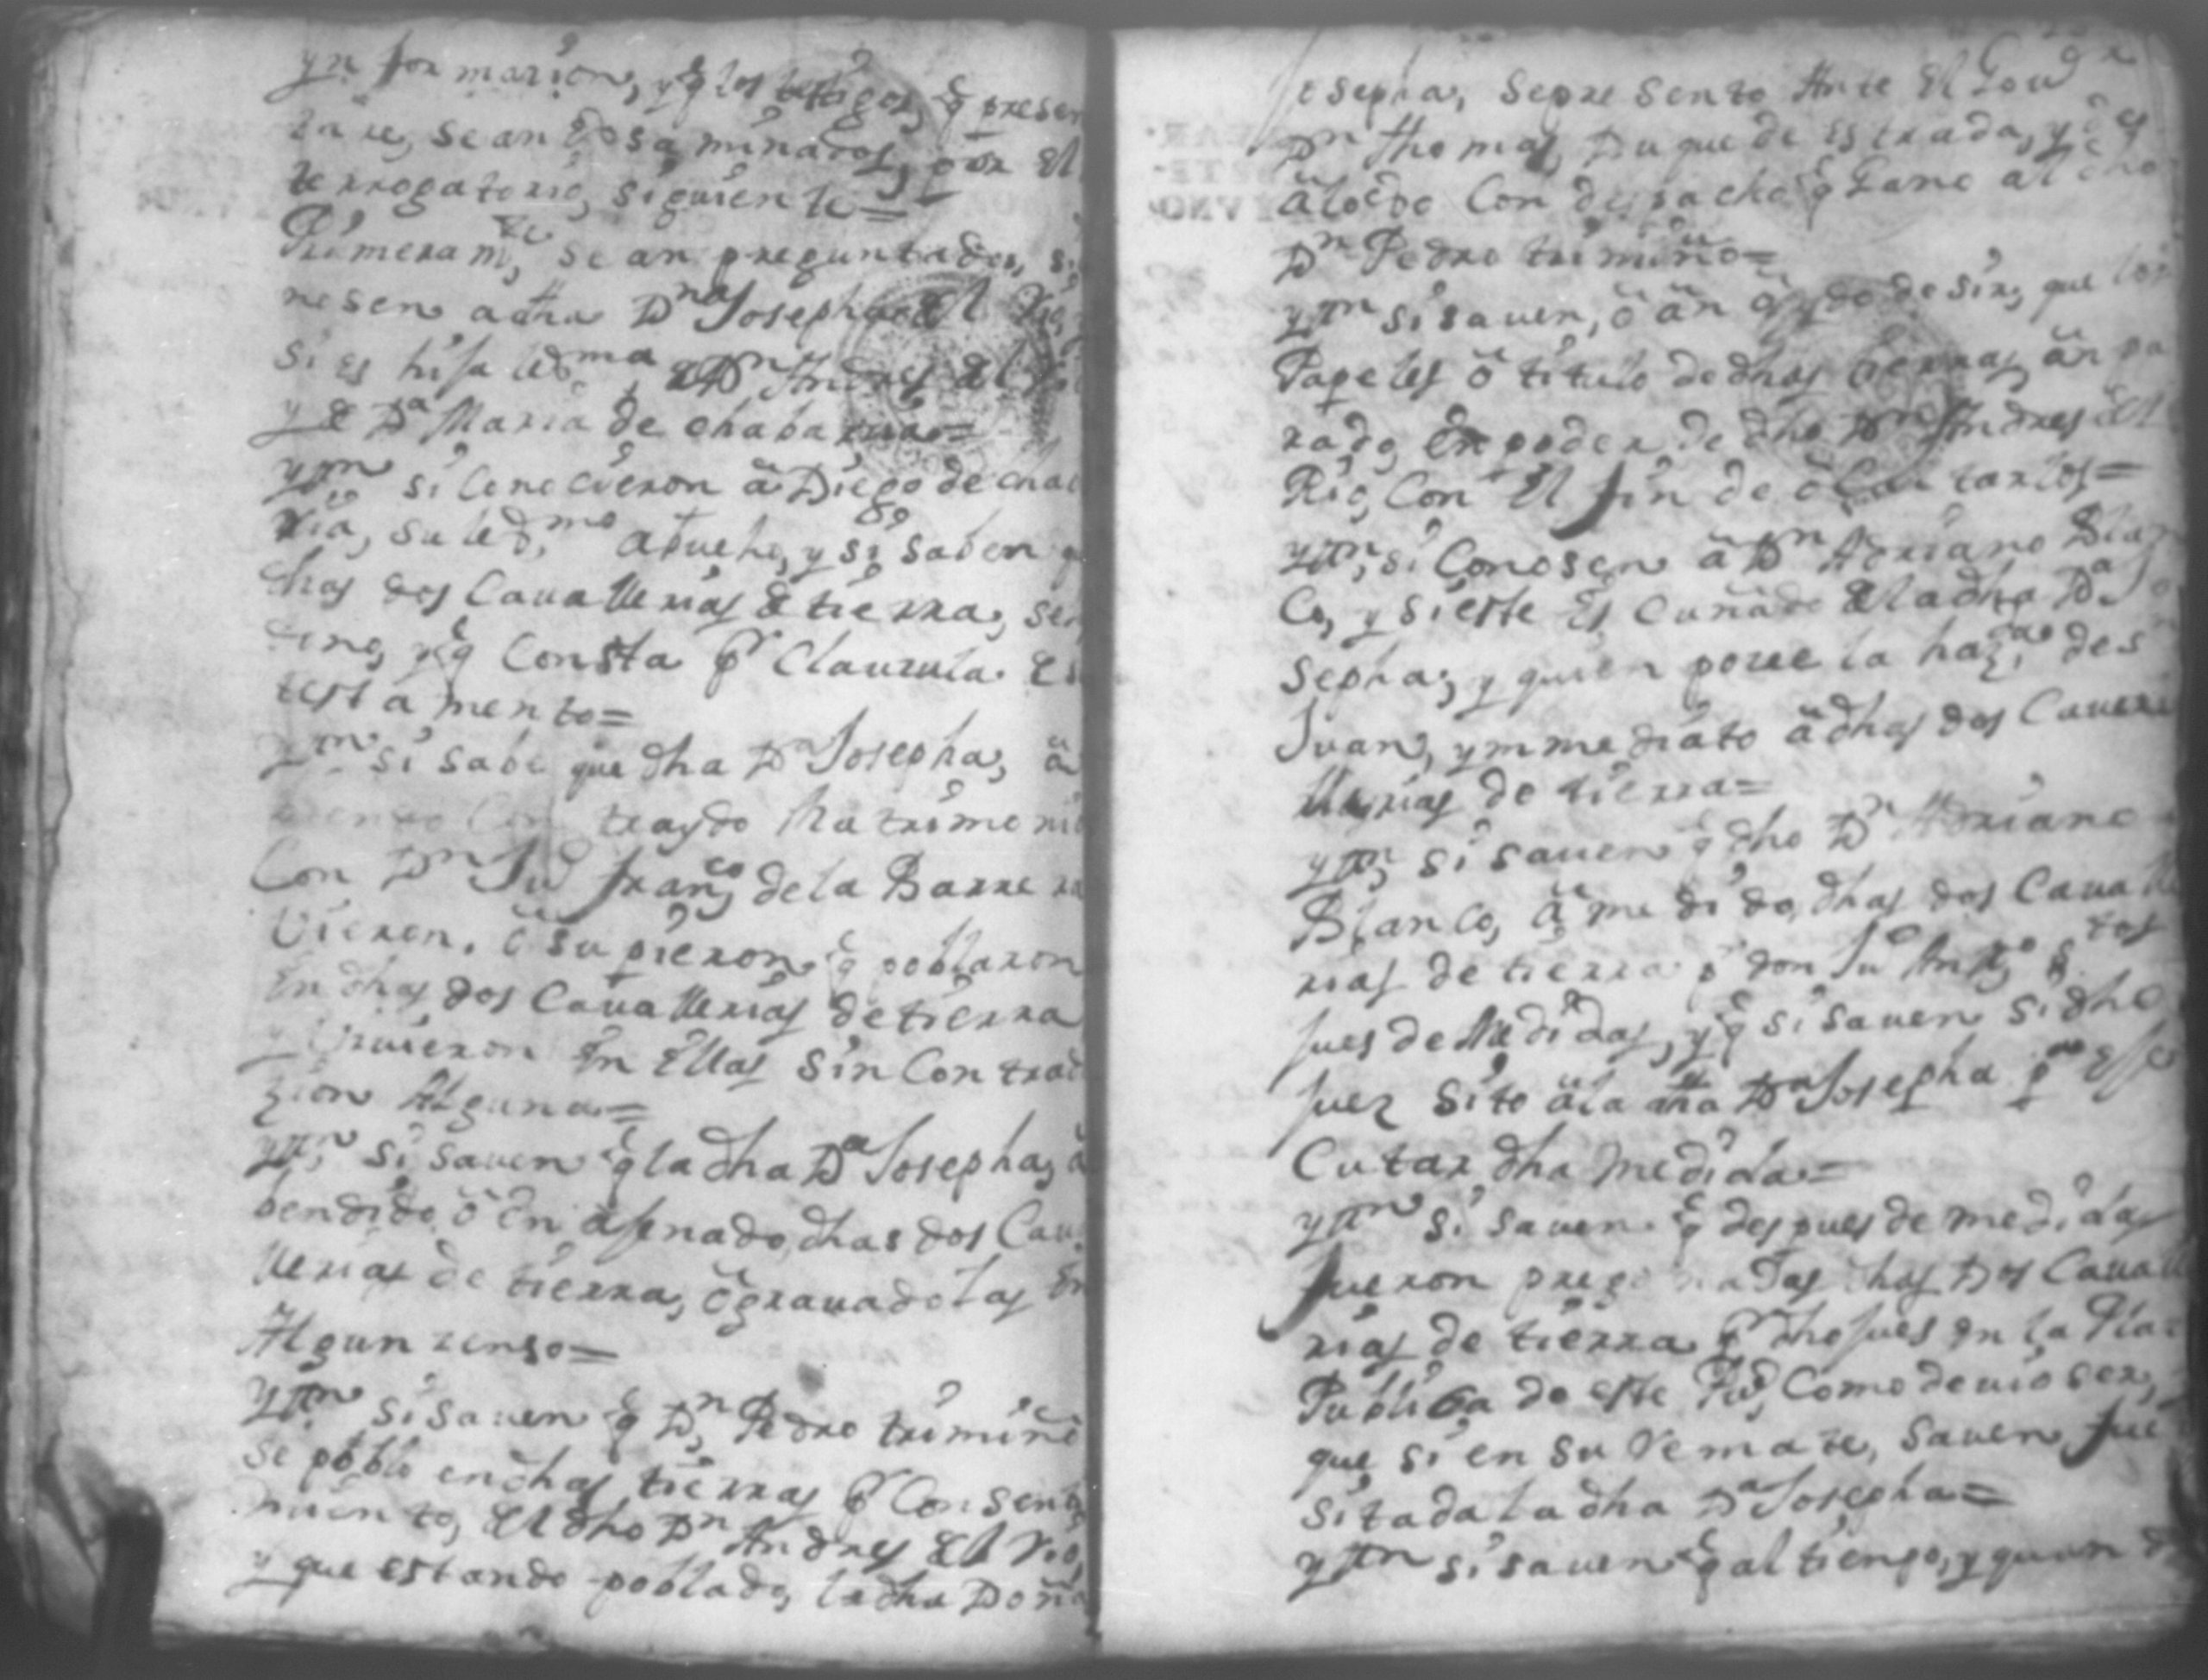 ynformasion, y q̃ los testigos, q̃ presen
tare, sean Exsaminados, por El
terrogatorio, siguiente=
Primeramte, sean preguntados, si
nosen a dha Dna Josepha del Rio,
si es hija lexma, de Dn Andres del Rio
y de Da Maria de chabarria=
Ytn si Conocieron â Diego de chab
rria, su lexmo abuelo, y si saben q
dhas dos Cauallerias de tierra, se
y q̃ Consta pr Clausula de
testamento=
Ytn si sabe que dha Da Josepha, â
traydo Matrimonio
Con Dn Ju Franco de la Barrera
Vieron, ô supieron q̃ poblaron
En dhas dos Cauallerias de tierra
y Viuieron En Ellas sin Contradi
zion Alguna=
Ytn si sauen q̃ la dha Da Josepha, â
bendido, ô Enajenado, dhas dos Caua
llerias de tierra, ô grauadolas En
Algun senso=
Ytn si sauen q̃ Dn Pedro trimiño
se poblo en dhas tierras pr Consenti
miento, del dho Dn Andres del Rio,
y que estando poblado, la dha Doña
Josepha, se presento Ante El Gour
Dn Thomas Duque de Estrada, y
con despacho q̃ Gano al dho
Dn Pedro trimiño=
Ytn si sauen, ô ân oydo desir, que los
Papeles ô titulo de dhas tierras, ân pa
rado, En poder de dho Dn Andres del
Rio, Con El fin de ôcultarlos=
Ytn, si Conosen â Dn Adriano Blan
Co, y si este Es Cuñado de la dha Da Jo
sepha, y quien posee la hazda de Sn
Juan, ynmediato â dhas dos Caua
llerias de tierra=
Ytn, si sauen q̃ dho Dn Adriano
Blanco, â medido, dhas dos Caualle
rias de tierra pr don Ju Anto
Jues de Medidas, y q̃ si sauen si dho
Juez Sito â la dha Da Josepha pa Esse
Cutar dha medida=
Ytn si sauen q̃ despues de medidas
fueron pregonadas dhas Dos Cauall
rias de tierra pr dho Jues En la Plaza
Publica de este Pue, Como deuio ser,
que si en su Remate, sauen fue
Sitada la dha Da Josepha=
Ytn si sauen q̃ al tiempo, y quan d